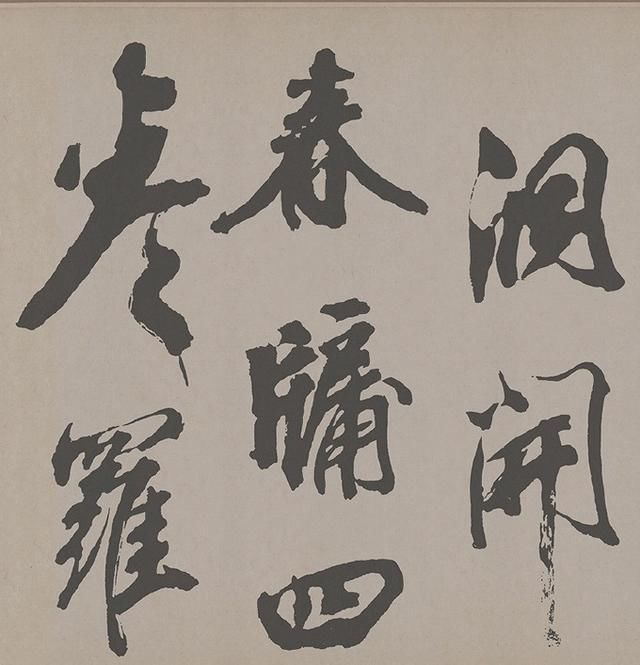 洞開
春牖四
羅